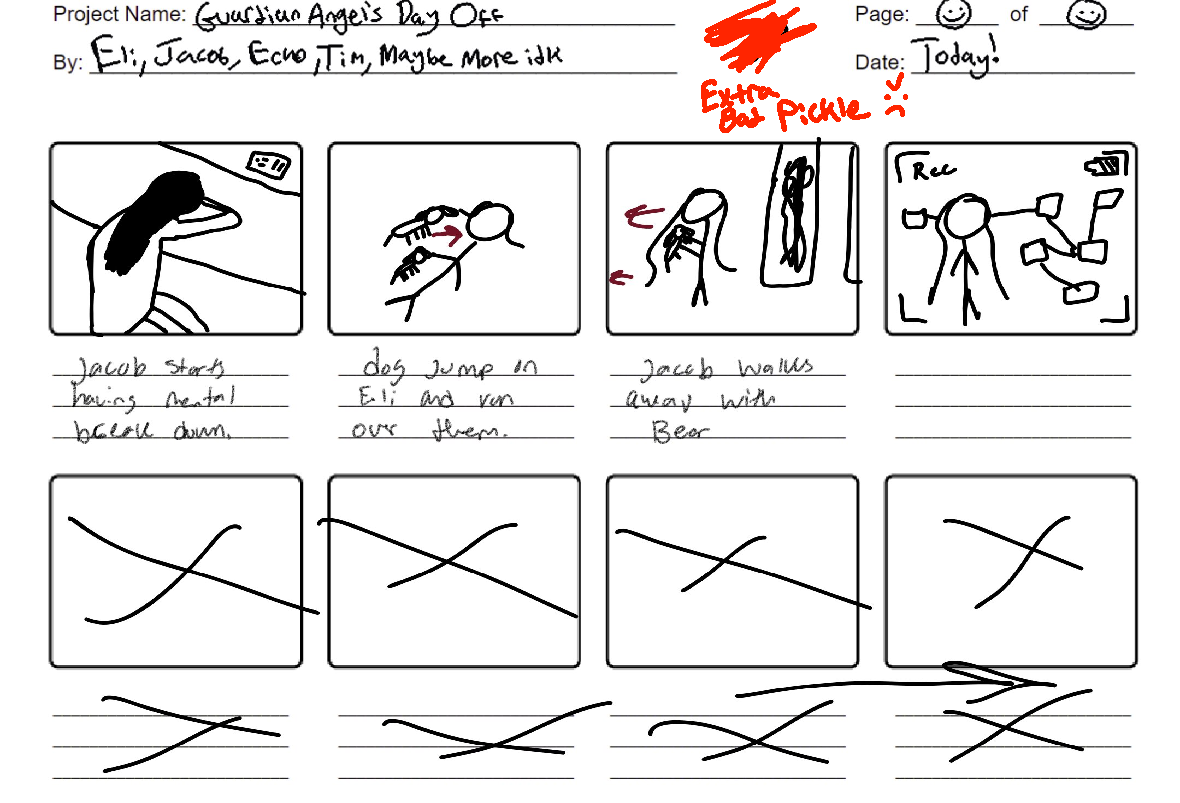 Project Name: Guardian Angel's Day Off
Page: of
By: Eli, Jacob, Echo, Tim, Maybe More idk
Date: Today!
Extra
Bad Pickle
Rec
Jacob starts
having mental
break down.
dog jump on
Eli and run
over them.
Jacob walks
away with
Bear